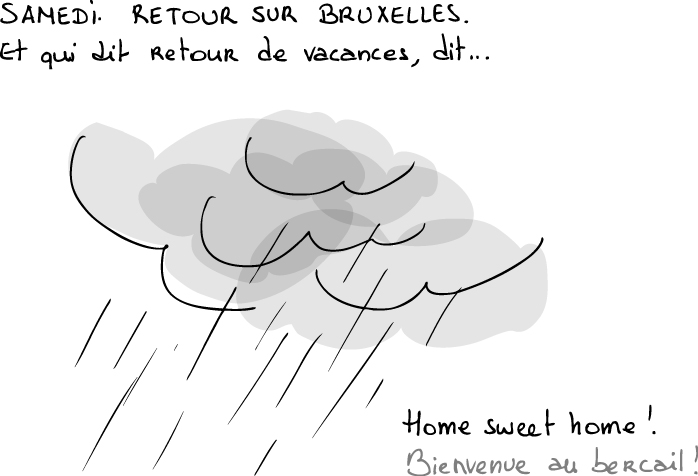 SAMEDI. RETOUR SUR BRUXELLES.
Et qui dit retour de vacances, dit...
Home sweet home !
Bienvenue au bercail !